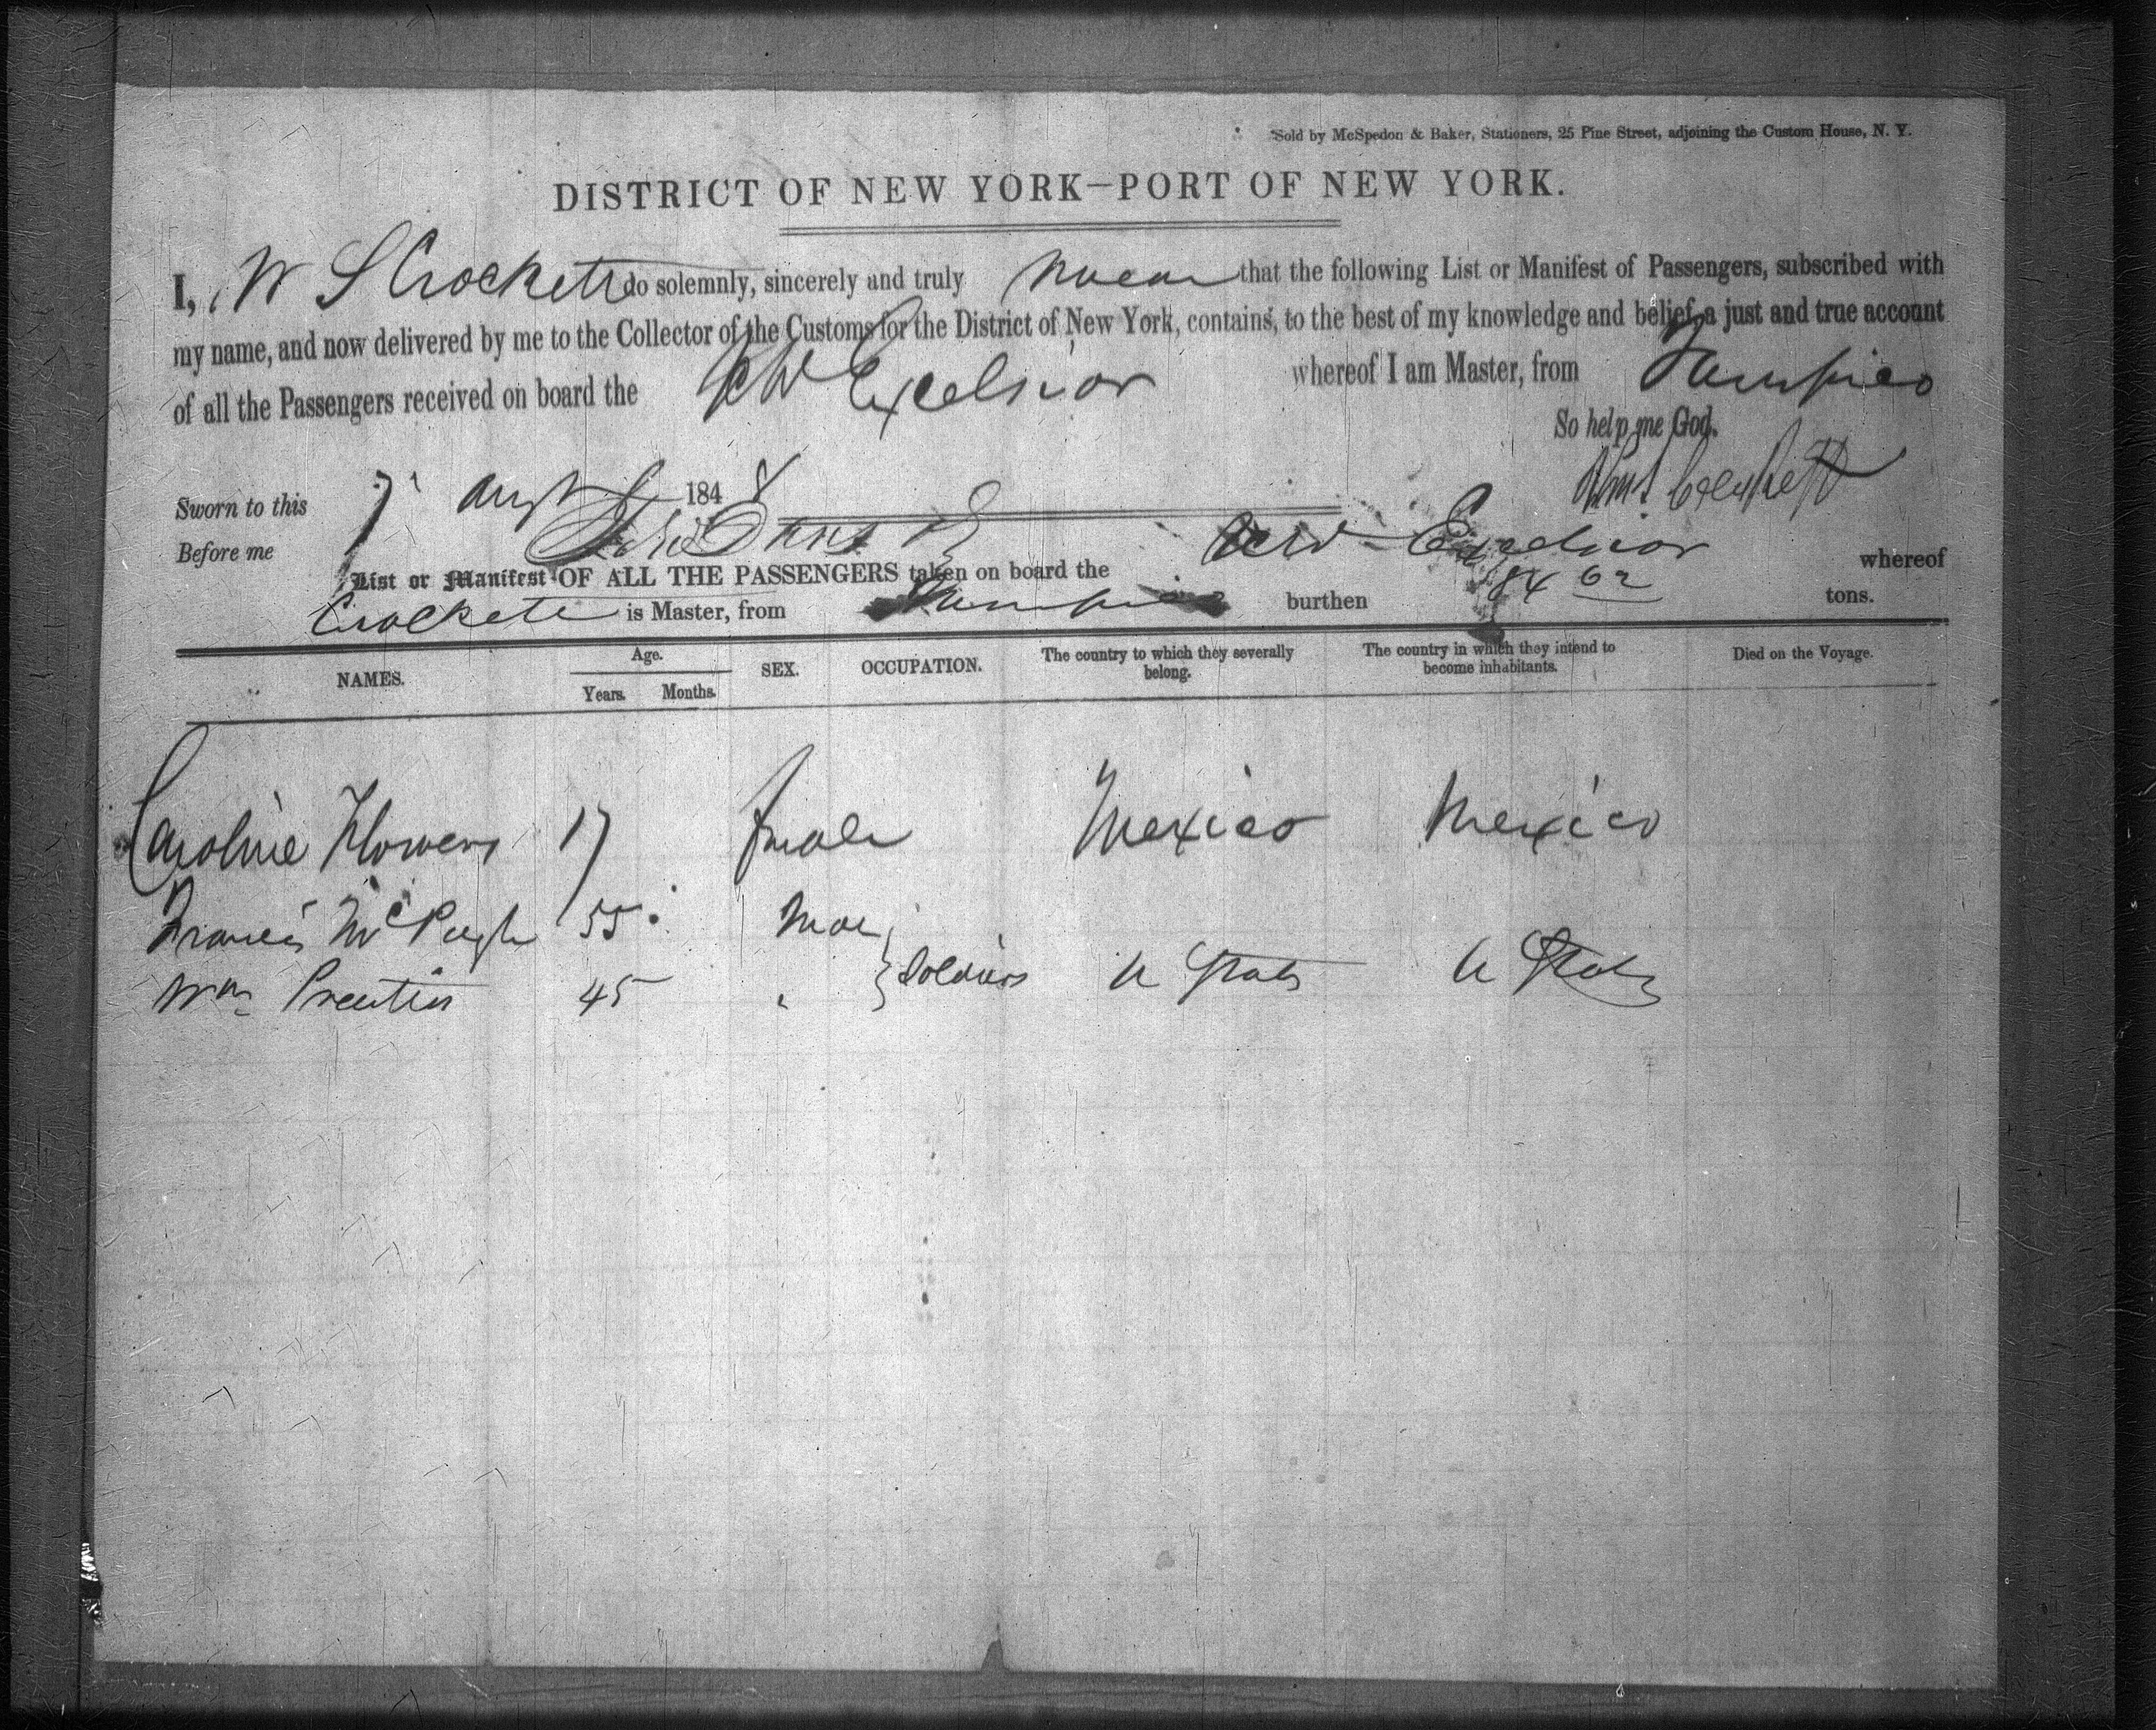 Sold by McSpedon & Baker, Stationers, 25 Pine Street, adjoining the Custom House, N. Y.
DISTRICT OF NEW YORK—PORT OF NEW YORK.
I, W S Crockett do solemnly, sincerely and truly swear that the following List or Manifest of Passengers, subscribed with
my name, and now delivered by me to the Collector of the Customs for the District of New York, contains, to the best of my knowledge and belief, a just and true account
of all the Passengers received on board the Excelsior whereof I am Master, from Tampico
So help me God.
Sworn to this 7 Augt 1848 Wm S Crockett
Before me
List or Manifest OF ALL THE PASSENGERS taken on board the Excelsior whereof
Crockett is Master, from Tampico burthen 84 62 tons.
NAMES. Age. Years. Months. SEX. OCCUPATION. The country to which they severally belong. The country in which they intend to become inhabitants. Died on the Voyage.
Caroline Flowers 17 female Mexico Mexico
Francis McPugh 55 Male
Wm Prentiss 45 " } Soldiers U States U States